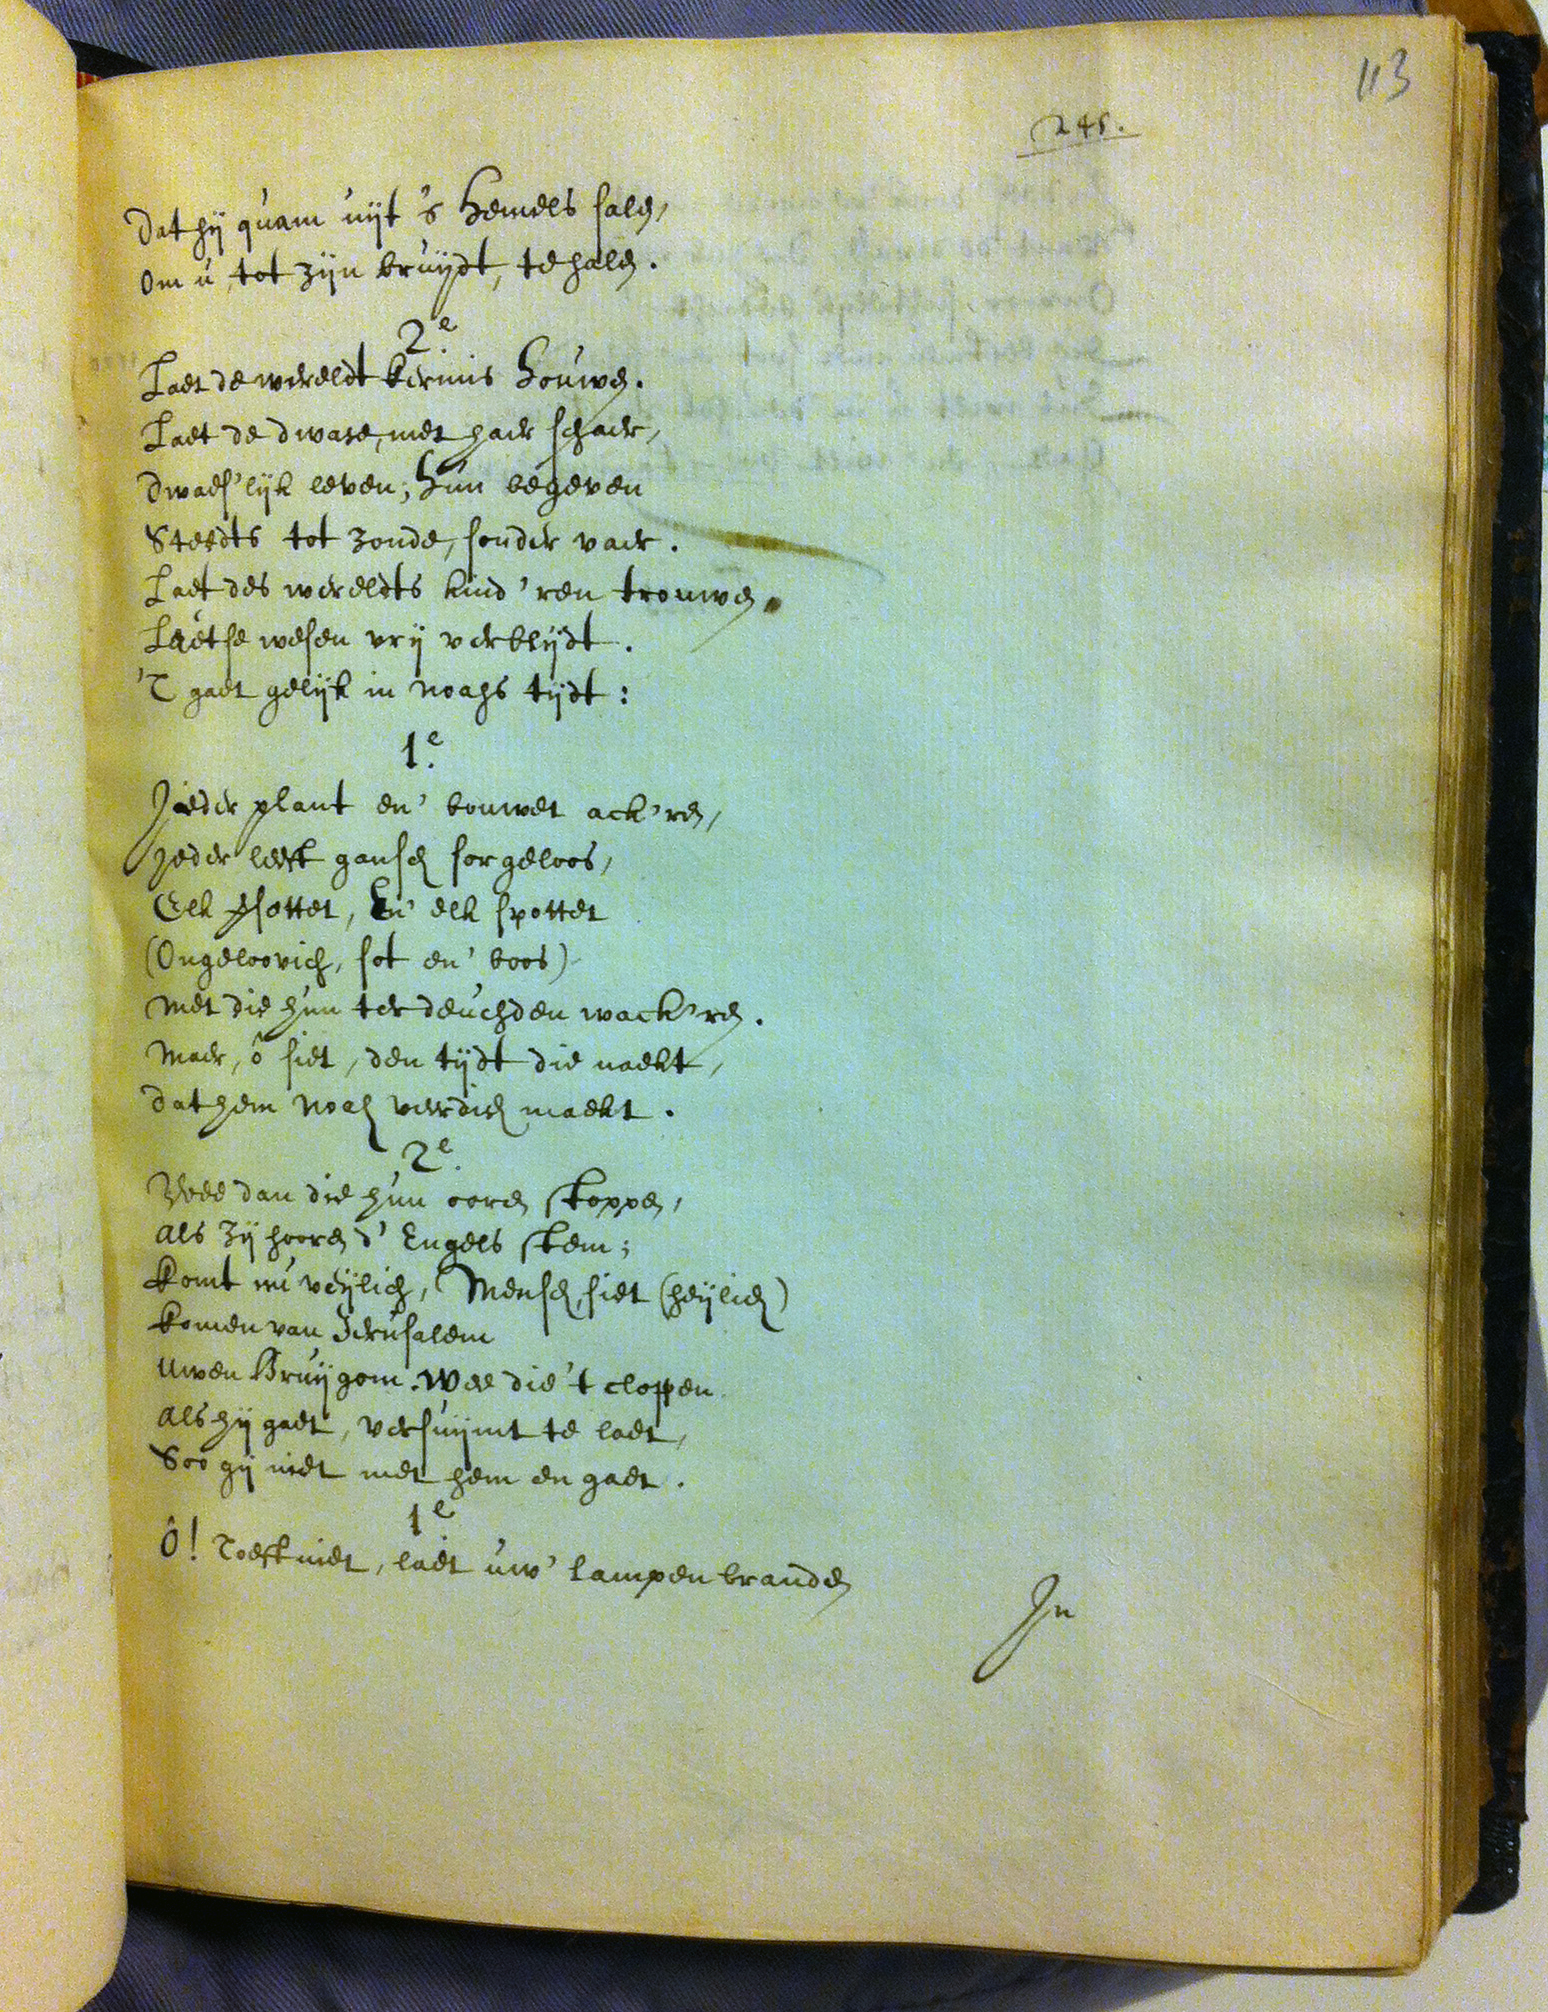 113
245.
Dat hij quam uijt 's Hemels salen,
Om u, tot zijn bruijdt, te halen.
2e.
Laet de wereldt kermis houwen.
Laet de dwase, met haer schaer,
Dwaes'lijk leven; hun begeven
Steedts tot zonde, sonder vaer.
Laet des wereldts kind'ren trouwen,
Laetse wesen vrij verblijdt.
'T gaet gelijk in Noahs tijdt:
1e.
Jeder plant en' bouwet ack'ren,
Jeder leeft gansch sorgeloos,
Elk sottet, En' elk spottet
(Ongeloovich, sot en' boos)
Met die hun ter deuchden wack'ren.
Maer, ô siet, den tijdt die naekt,
Dat hem Noah veerdich maekt.
2e.
Wee dan die hun ooren stoppen,
Als zij hooren d' Engels stem;
Komt nu veijlich, Mensch, siet (heijlich)
Komen van Jerusalem
Uwen Bruijgom. Wee die 't cloppen
Als hij gaet, versuijmt te laet,
Soo gij niet met hem en gaet.
1e
Ô! Toeft niet, laet uw' lampen branden
In